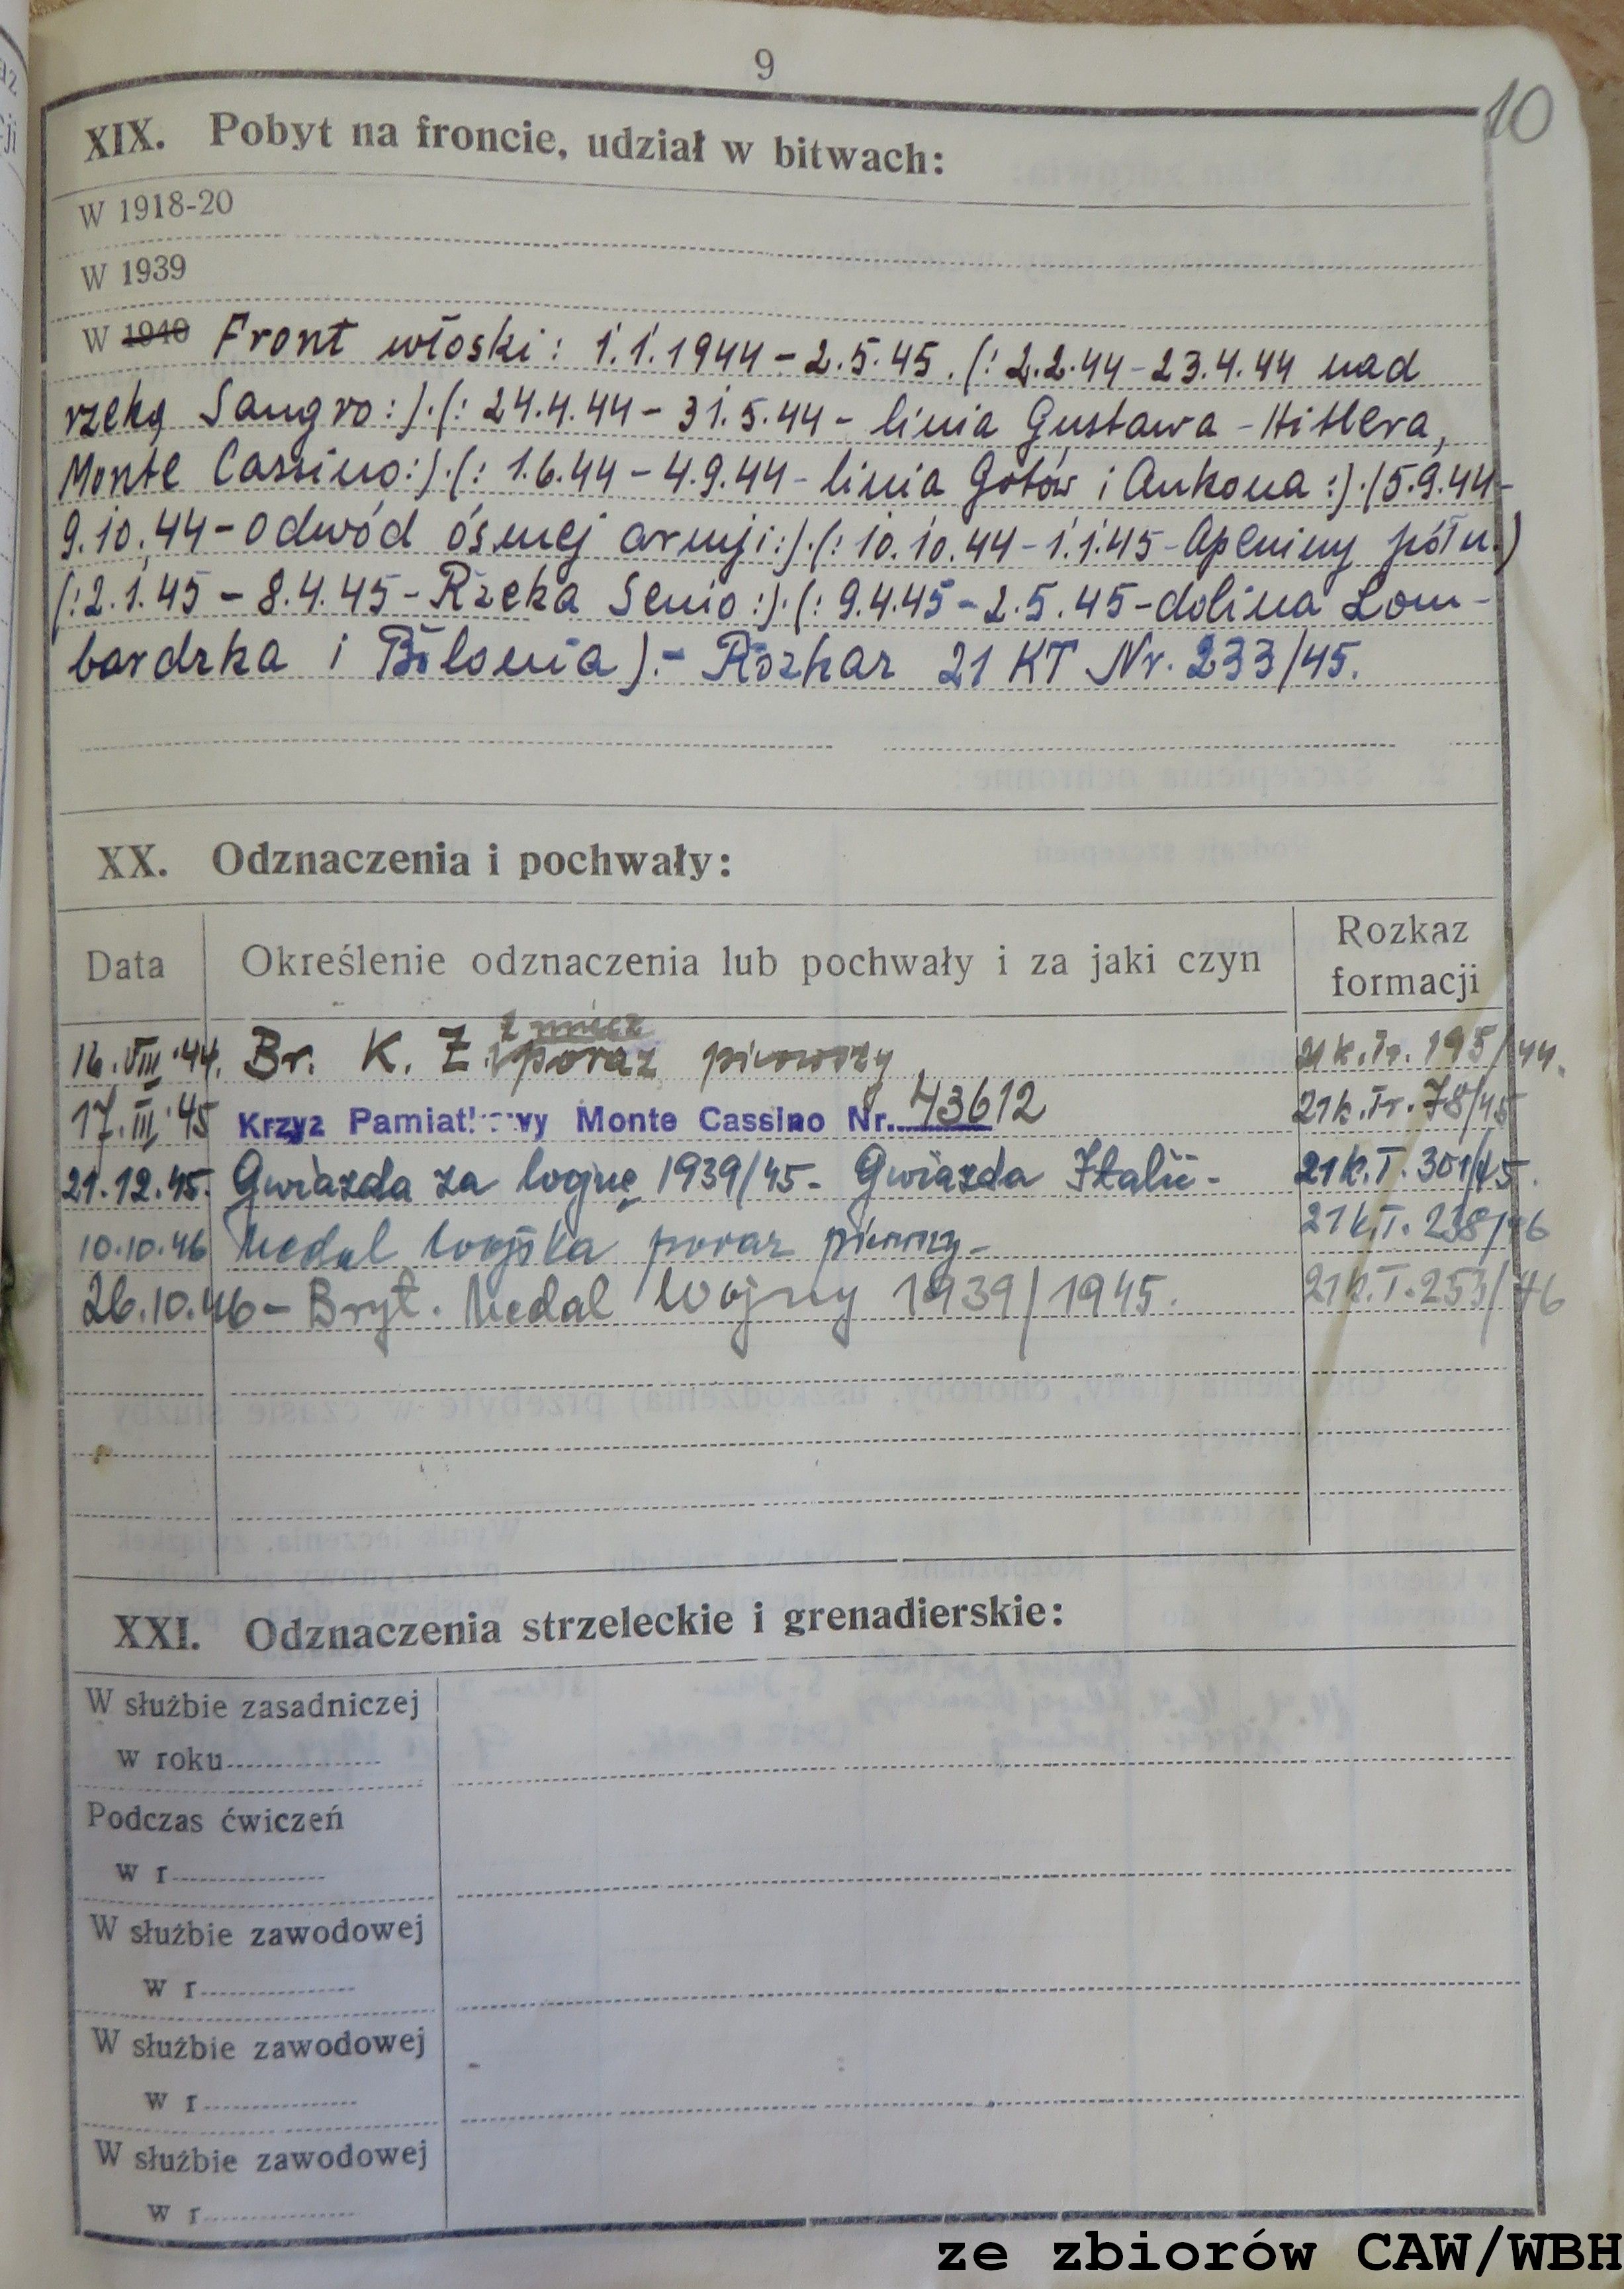 9
10
XIX. Pobyt na froncie, udział w bitwach:
W 1918-20
W 1939
W 1940 Front włoski: 1.1.1944 – 2.5.45. (: 2.2.44 – 23.4.44 nad
rzeką Sangro:).(: 24.4.44 – 31.5.44 – linia Gustawa – Hitlera,
Monte Cassino:).(: 1.6.44 – 4.9.44 – linia Gotów i Ankona :).(5.9.44 –
9.10.44 – odwód ósmej armji:).(: 10.10.44 – 1.1.45 – Apeniny półn.)
(: 2.1.45 – 8.4.45 – Rzeka Senio:).(: 9.4.45 – 2.5.45 – dolina Lom-
bardzka i Bolonia).– Rozkaz 21 KT Nr. 233/45.
XX. Odznaczenia i pochwały:
Data Określenie odznaczenia lub pochwały i za jaki czyn Rozkaz formacji
z miecz
16.VIII.44. Br. K. Z. poraz pierwszy 21 k.Tr. 195/44.
17.III.45 Krzyż Pamiątkowy Monte Cassino Nr. 43612 21k.Tr.78/45
21.12.45. Gwiazda za wojnę 1939/45 – Gwiazda Italii – 21k.T.301/45.
10.10.46 Medal wojska poraz pierwszy – 21k.T.238/46
26.10.46 – Bryt. Medal Wojny 1939/1945. 21k.T.253/46
XXI. Odznaczenia strzeleckie i grenadierskie:
W służbie zasadniczej
w roku
Podczas ćwiczeń
w r
W służbie zawodowej
w r
W służbie zawodowej
w r
W służbie zawodowej
w r
ze zbiorów CAW/WBH